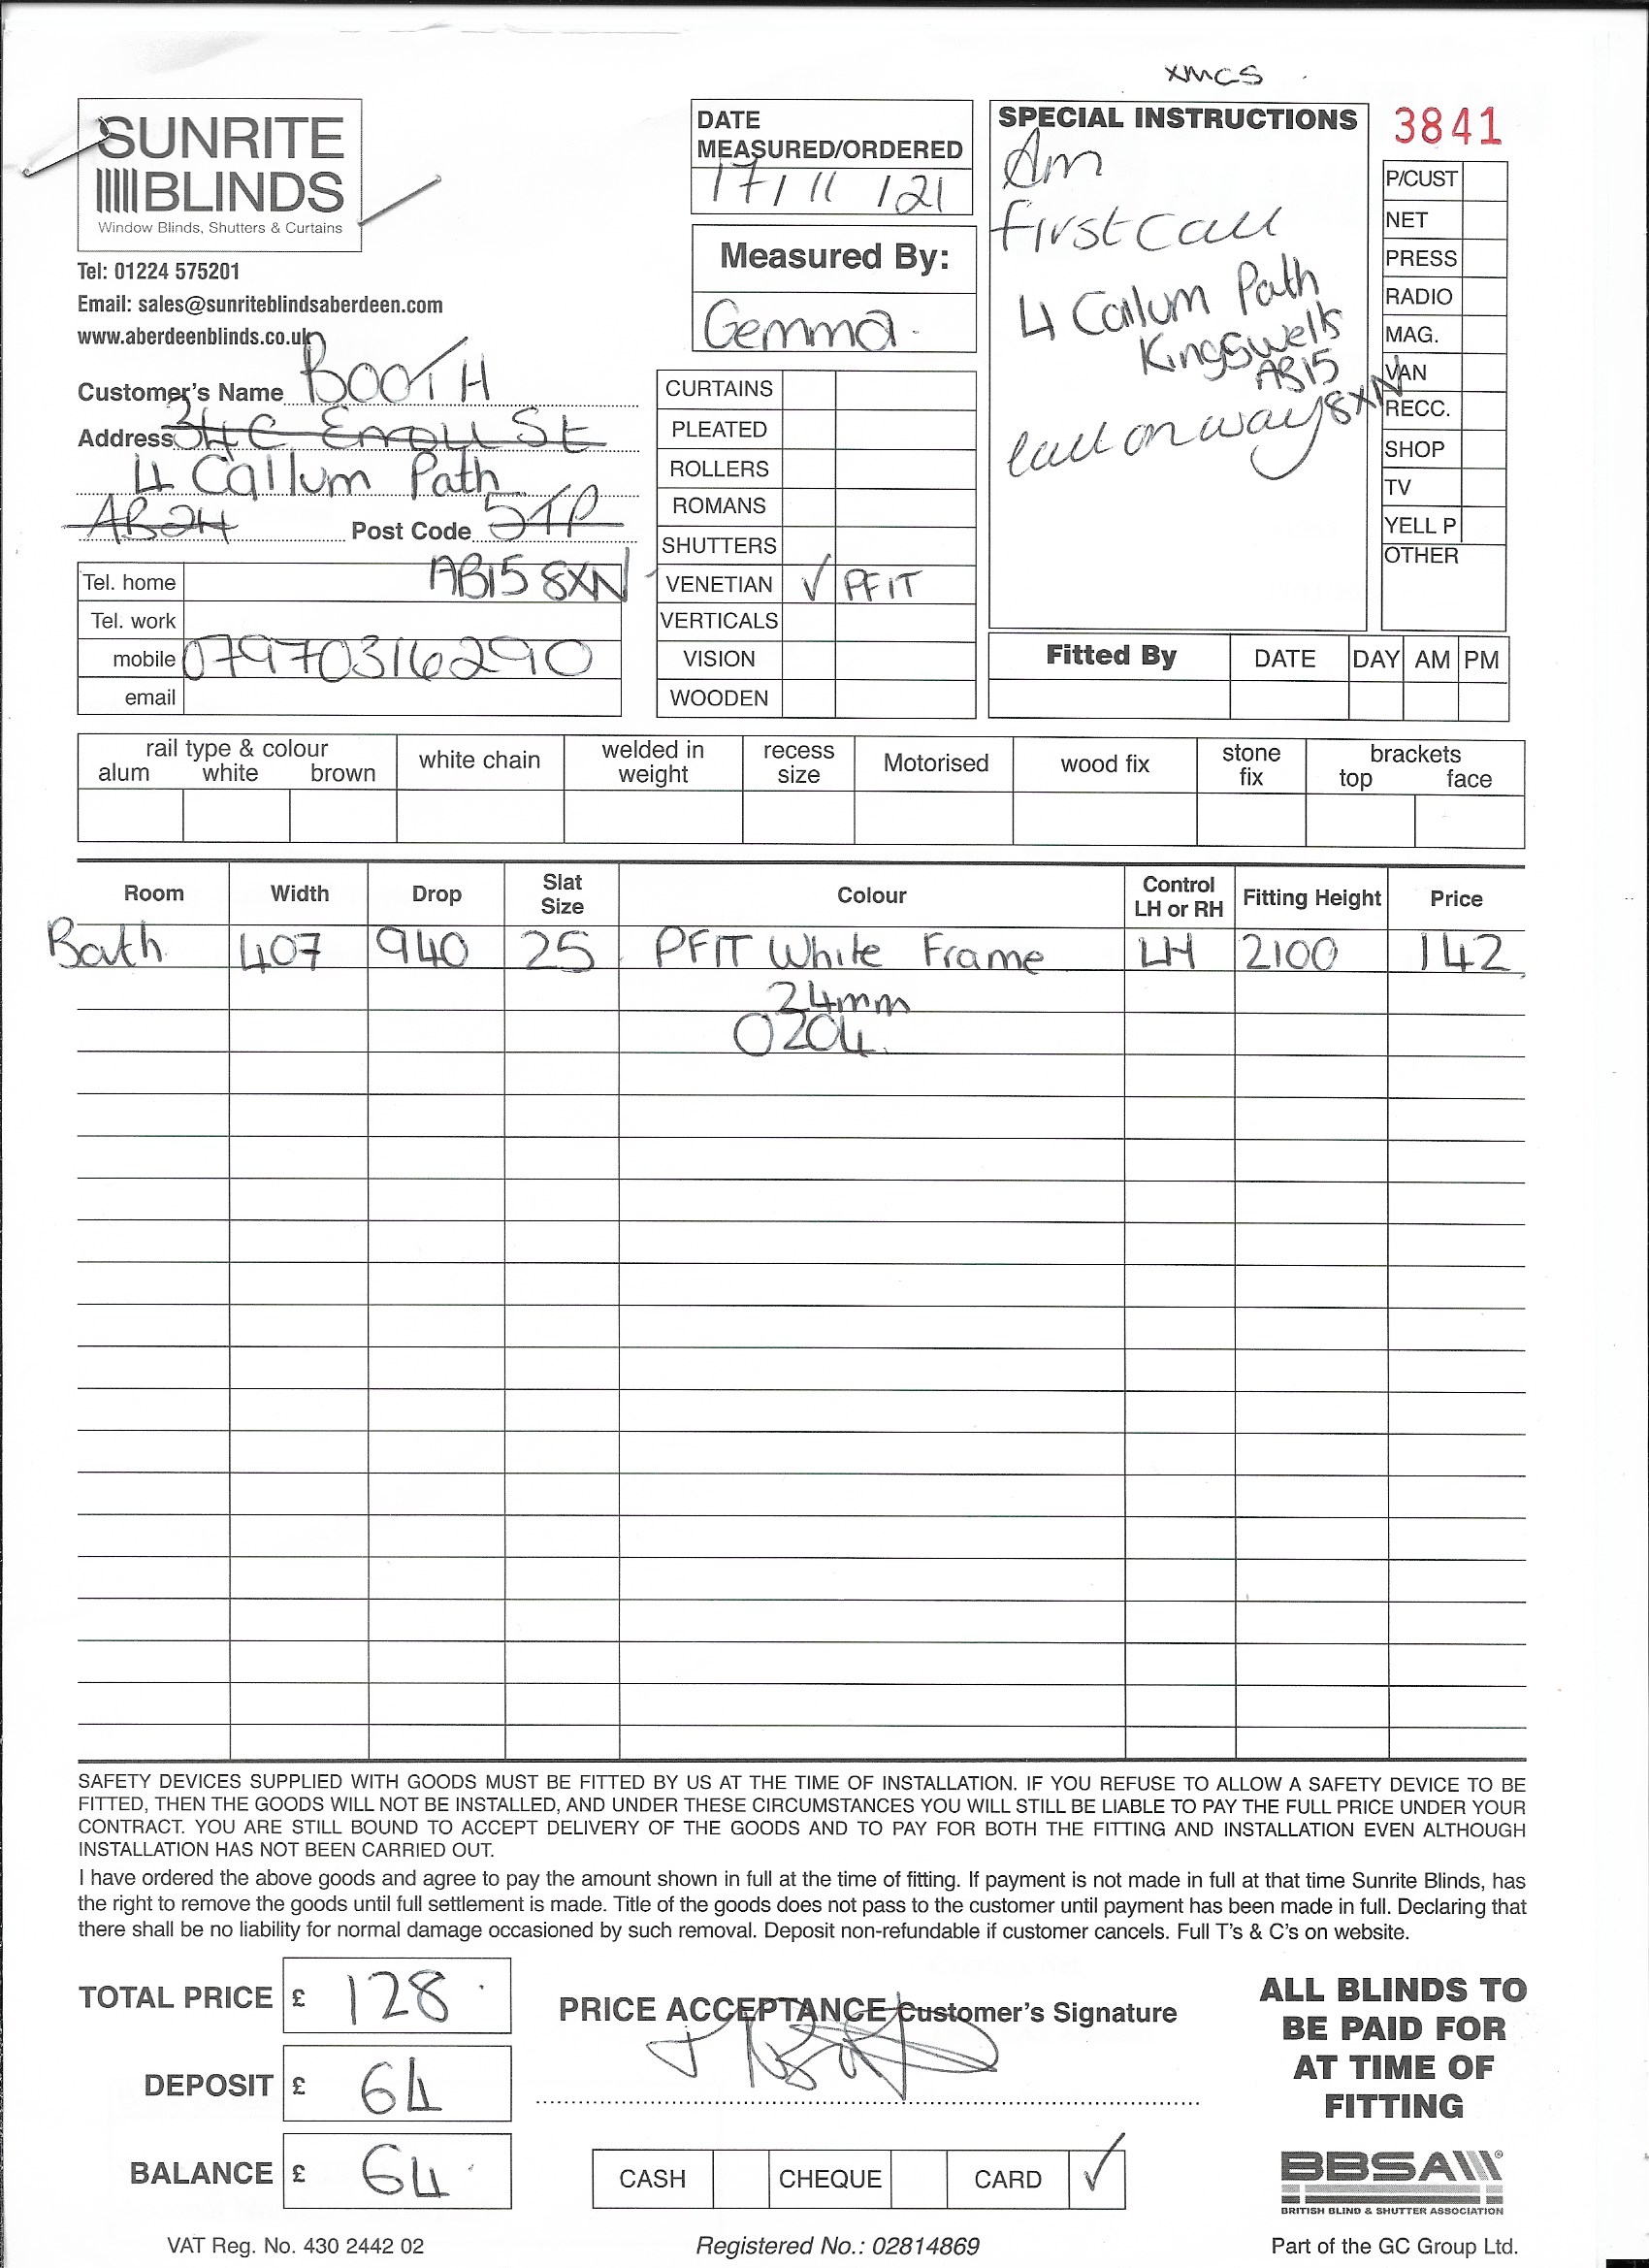 XMCS
SUNRITE
BLINDS
Window Blinds, Shutters & Curtains
Tel: 01224 575201
Email: sales@sunriteblindsaberdeen.com
www.aberdeenblinds.co.uk
Customer's Name BOOTH
Address 34C Erroll St
4 Callum Path
AB24 Post Code 5TP
AB15 8XN
Tel. home
Tel. work
mobile 07970316290
email
DATE
MEASURED/ORDERED
17/11/21
Measured By:
Gemma.
CURTAINS
PLEATED
ROLLERS
ROMANS
SHUTTERS
VENETIAN ✓ PFIT
VERTICALS
VISION
WOODEN
SPECIAL INSTRUCTIONS
Am
First Call
4 Callum Path
Kingswells
AB15
8XN
call on way
3841
P/CUST
NET
PRESS
RADIO
MAG.
VAN
RECC.
SHOP
TV
YELL P
OTHER
Fitted By DATE DAY AM PM
rail type & colour
alum white brown
white chain
welded in
weight
recess
size
Motorised
wood fix
stone
fix
brackets
top face
Room Width Drop Slat Size Colour Control LH or RH Fitting Height Price
Bath 407 940 25 PFIT White Frame LH 2100 142
24mm
0204.
SAFETY DEVICES SUPPLIED WITH GOODS MUST BE FITTED BY US AT THE TIME OF INSTALLATION. IF YOU REFUSE TO ALLOW A SAFETY DEVICE TO BE
FITTED, THEN THE GOODS WILL NOT BE INSTALLED, AND UNDER THESE CIRCUMSTANCES YOU WILL STILL BE LIABLE TO PAY THE FULL PRICE UNDER YOUR
CONTRACT. YOU ARE STILL BOUND TO ACCEPT DELIVERY OF THE GOODS AND TO PAY FOR BOTH THE FITTING AND INSTALLATION EVEN ALTHOUGH
INSTALLATION HAS NOT BEEN CARRIED OUT.
I have ordered the above goods and agree to pay the amount shown in full at the time of fitting. If payment is not made in full at that time Sunrite Blinds, has
the right to remove the goods until full settlement is made. Title of the goods does not pass to the customer until payment has been made in full. Declaring that
there shall be no liability for normal damage occasioned by such removal. Deposit non-refundable if customer cancels. Full T's & C's on website.
TOTAL PRICE £ 128.
DEPOSIT £ 64
BALANCE £ 64.
PRICE ACCEPTANCE Customer's Signature
CASH CHEQUE CARD ✓
ALL BLINDS TO
BE PAID FOR
AT TIME OF
FITTING
BBSA
BRITISH BLIND & SHUTTER ASSOCIATION
VAT Reg. No. 430 2442 02
Registered No.: 02814869
Part of the GC Group Ltd.